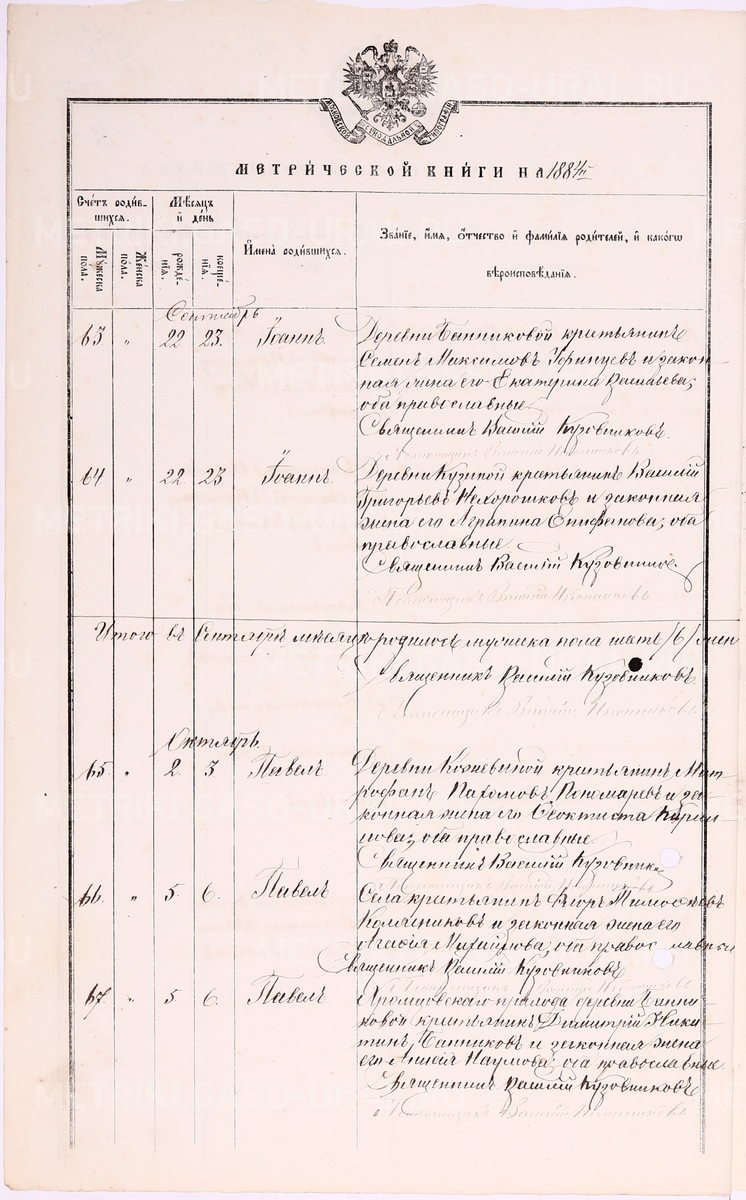 МЕТРИЧЕСКОЙ КНИГИ НА 1884
Счетъ родив-
шихся.
Мѣсяцъ
и день
Имена родившихся.
Званіе, имя, отчество и фамилія родителей, и какогѡ
вѣроисповѣданія.
Мужеска
пола.
Женска
пола.
рожде-
нія.
креще-
нія.
Сентябрь
63 " 22 23. Іоаннъ Деревни Банниковой крестьянинъ
Семенъ Максимовъ Уфинцевъ и закон-
ная жена его Екатерина Васильева;
оба православные.
Священникъ Василій Кузовниковъ.
64 " 22. 23 Іоаннъ. Деревни Кузиной крестьянинъ Василій
Григорьевъ Нехорошковъ и законная
жена его Агрипина Епифанова; оба
православные.
Священникъ Василій Кузовников.
Итого въ Сентябрѣ мѣсяцѣ родилось мужеска пола шесть /6/ жен
Священникъ Василій Кузовниковъ
Октябрь.
65. " 2. 3 Павелъ Деревни Кожевиной крестьянинъ Мит-
рофанъ Пахомовъ Пономаревъ и за-
конная жена его Феоктиста Кирил-
лова; оба православные.
Священникъ Василій Кузовников
66. " 5. 6. Павелъ Села крестьянинъ Егоръ Тимофеевъ
и законная жена его
Агафія Михайлова; оба православные
Священникъ Василій Кузовниковъ
67 " 5 6. Павелъ Хромцовскаго прихода деревни Банни-
ковой крестьянинъ Димитрій Ники-
тинъ Банниковъ и законная жена
его Анисія Наумова; оба православные.
Священникъ Василій Кузовниковъ